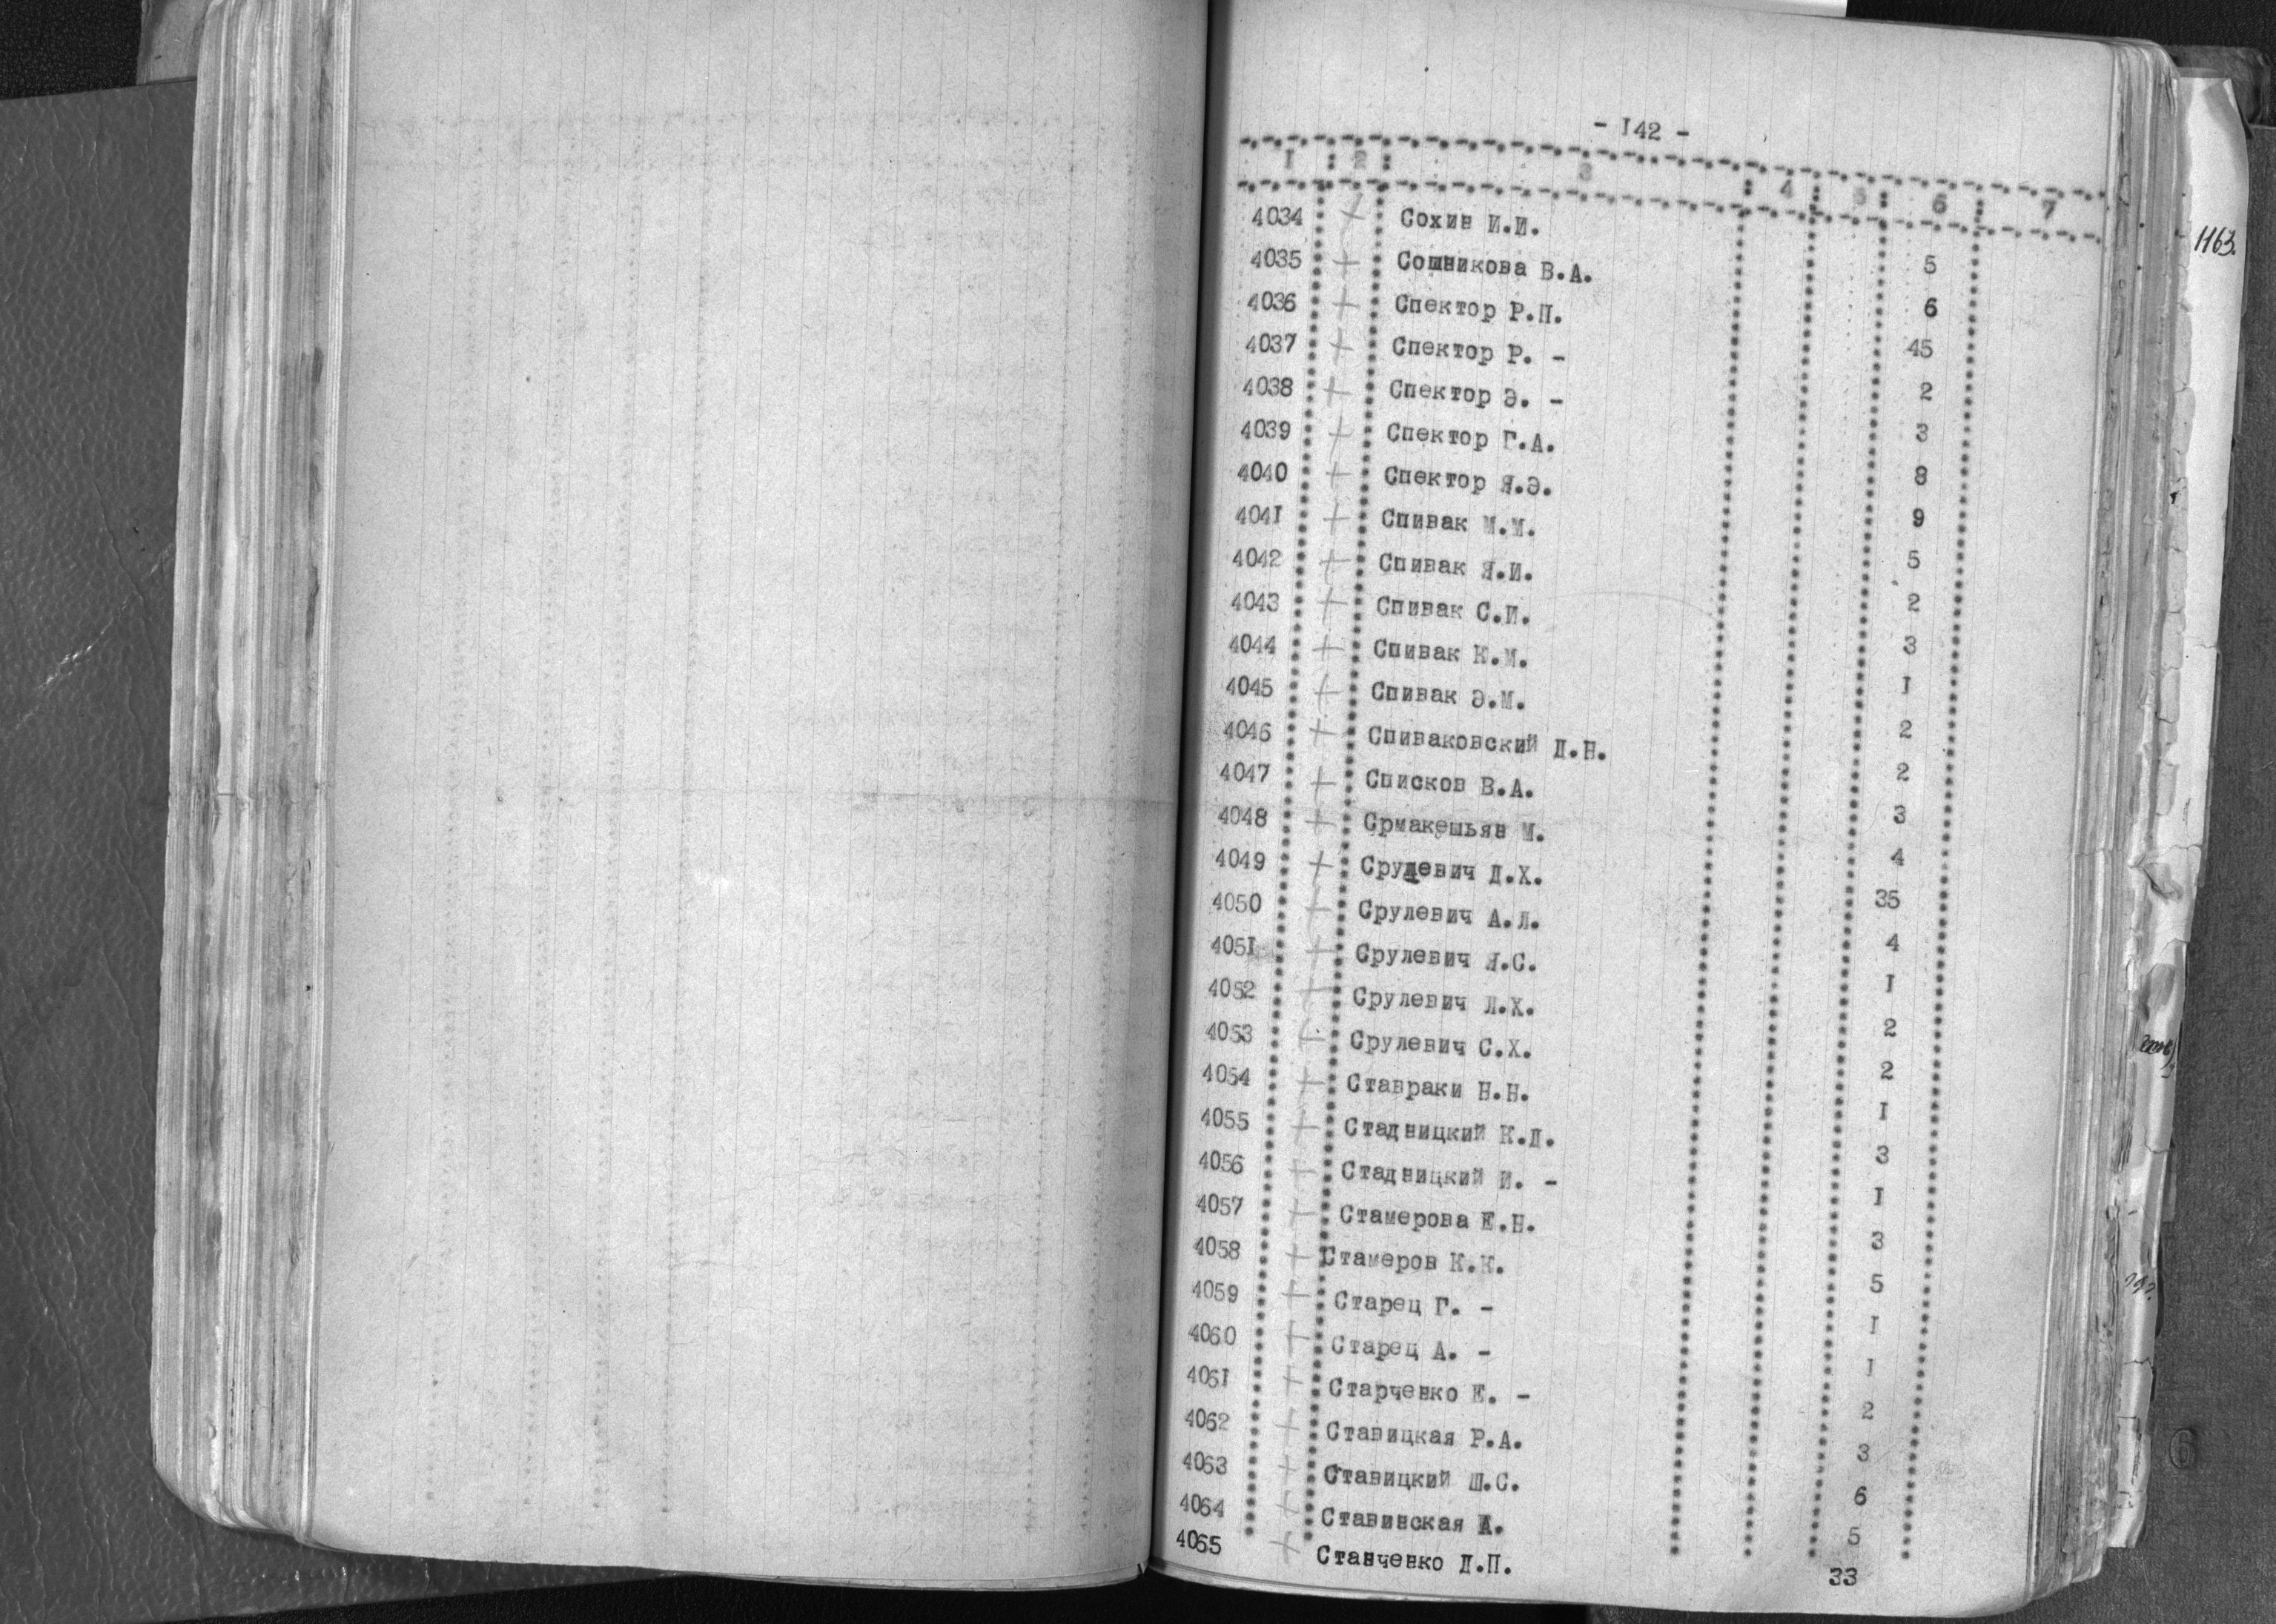 - I42 -
I : 2 : 3 : 4 : 5 : 6 : 7
4034 + Сохин И.И. 5
4035 + Сошникова В.А. 6
4036 + Спектор Р.П. 45
4037 + Спектор Р. - 2
4038 + Спектор Э. - 3
4039 + Спектор Г.А. 8
4040 + Спектор Я.Э. 9
404I + Спивак М.М. 5
4042 + Спивак Я.И. 2
4043 + Спивак С.И. 3
4044 + Спивак К.М. I
4045 + Спивак Э.М. 2
4046 + Спиваковский Д.Н. 2
4047 + Списков В.А. 3
4048 + Срмакешьян М. 4
4049 + Срулевич Д.Х. 35
4050 + Срулевич А.Л. 4
405I + Срулевич Я.С. I
4052 + Срулевич Л.Х. 2
4053 + Срулевич С.Х. 2
4054 + Ставраки Н.Н. I
4055 + Стадницкий К.Д. 3
4056 + Стадницкий И. - I
4057 + Стамерова Е.Н. 3
4058 + Стамеров К.К. 5
4059 + Старец Г. - I
4060 + Старец А. - I
406I + Старченко Е. - 2
4062 + Ставицкая Р.А. 3
4063 + Ставицкий Ш.С. 6
4064 + Стависская А. 5
4065 + Станченко Д.П. 33
1163.